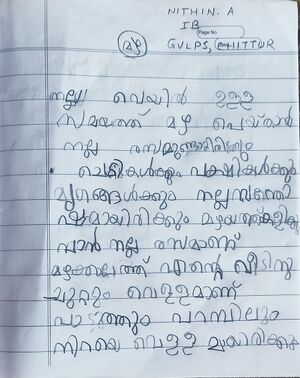 NITHIN. A
I B
Page No
GVLPS, CHITTUR
മഴ
നല്ല വെയിൽ ഉള്ള
സമയത്ത് മഴ പെയ്താൽ
നല്ല രസമുണ്ടായിരിക്കും
ചെടികൾക്കും പക്ഷികൾക്കും
മൃഗങ്ങൾക്കും നല്ല സന്തോ
ഷമായിരിക്കും മഴയത്ത് കളിക്കു
വാൻ നല്ല രസമാണ്
മഴക്കാലത്ത് എന്റെ വീടിനു
ചുറ്റും വെള്ളമാണ്
പാടത്തും പറമ്പിലും
നിറയെ വെള്ളമായിരിക്കും